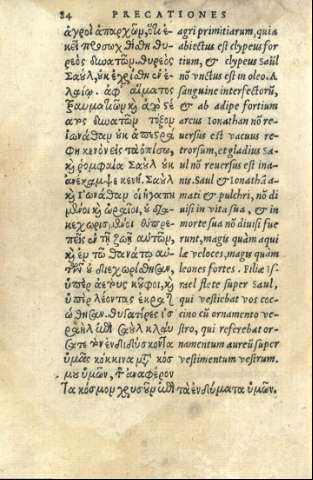 84 PRECATIONES
ἀγροὶ ἀπαρχῶν, ὅτι ἐ-
κεῖ προσωχθίσθη θυ-
ρεὸς δυνατῶν. θυρεὸς
Σαοὺλ, οὐκ ἐχρίσθη ἐν ἐ-
λαίῳ. ἀφ' αἵματος
τραυματιῶν καὶ ἀπὸ στέ-
ατος δυνατῶν τόξον
ἰωνάθαν οὐκ ἀπεστρά-
φη κενὸν εἰς τὰ ὀπίσω,
καὶ ῥομφαία Σαοὺλ οὐκ
ἀνέκαμψε κενή. Σαοὺλ
καὶ Ἰωνάθαν οἱ ἠγαπη
μένοι καὶ ὡραῖοι, οὐ δια-
κεχωρισμένοι εὐπρε-
πεῖς ἐν τῇ ζωῇ αὐτῶν,
καὶ ἐν τῷ θανάτῳ αὐ-
τῶν οὐ διεχωρίσθησαν,
ὑπὲρ ἀετοὺς κοῦφοι, καὶ
ὑπὲρ λέοντας ἐκρατ
ώθησαν. θυγατέρες ἰσ
ραὴλ ἐπὶ σαοὺλ κλαύ
σατε τὸν ἐνδιδύσκοντα
ὑμᾶς κόκκινα μετὰ κόσ
μου ὑμῶν, τὸν ἀναφέρον
τα κόσμον χρυσοῦν ἐπὶ τὰ ἐνδύματα ὑμῶν.
agri primitiarum, quia
abiectus est clypeus for
tium, & clypeus Saül
nō vnctus est in oleo. A
sanguine interfectorū,
& ab adipe fortium
arcus Ionathan nō re-
uersus est vacuus re-
trorsum, et gladius Sa-
ul nō reuersus est ina-
nis. Saul & Ionathā a-
mati & pulchri, nō di
uisi in vita sua, & in
morte sua nō diuisi fue
runt, magis quàm aqui
læ veloces, magis quàm
leones fortes. Filiæ Is-
rael flete super Saul,
qui vestiebat vos coc-
cino cū ornamento ve-
stro, qui referebat or-
namentum aureū super
vestimentum vestrum.